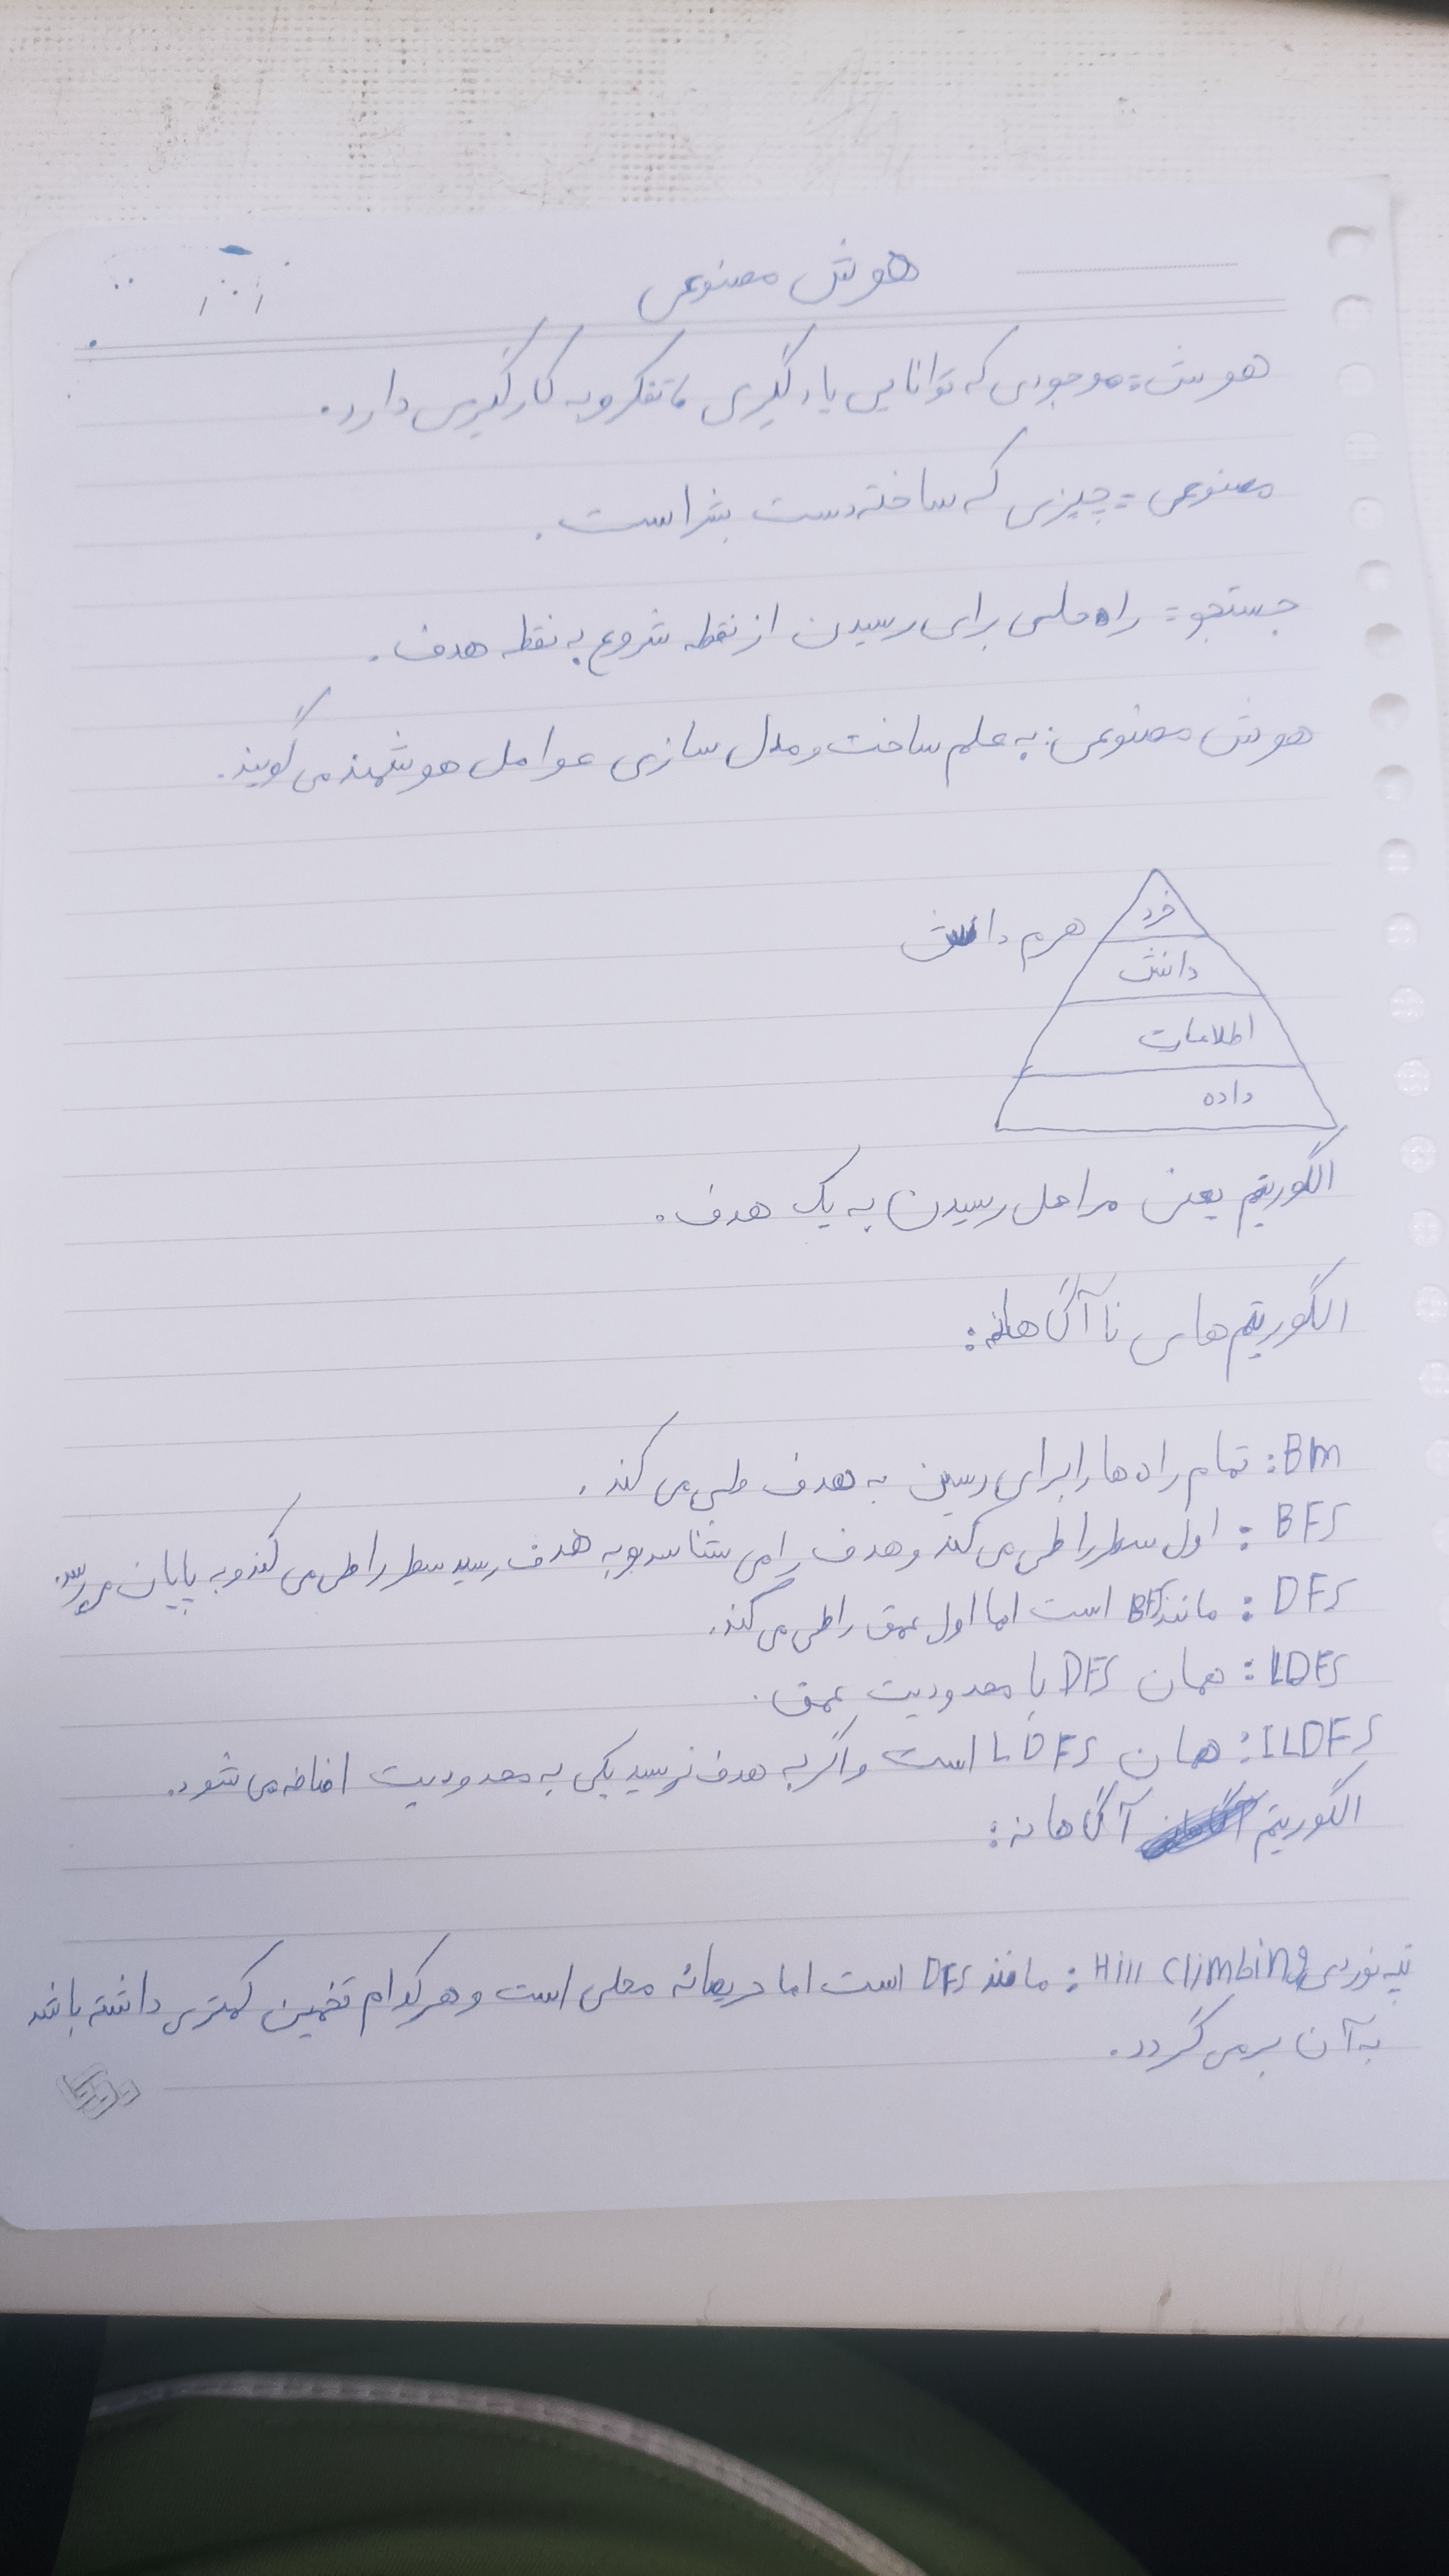 هوش مصنوعی
هوش = موجودی که توانایی یادگیری، تفکر و به کارگیری دارد.
مصنوعی = چیزی که ساخته دست بشر است.
جستجو = راه حلی برای رسیدن از نقطه شروع به نقطه هدف.
هوش مصنوعی: به علم ساخت و مدل سازی عوامل هوشمند می گویند.
هرم دانش
خرد
دانش
اطلاعات
داده
الگوریتم یعنی مراحل رسیدن به یک هدف.
الگوریتم های ناآگاهانه:
BM: تمام راه ها را برای رسین به هدف طی می کند.
BFS: اول سطر را طی می کند و هدف را می شناسد و به هدف رسید سطر را طی می کند و به پایان می رسد.
DFS: مانند BFS است اما اول عمق را طی می کند.
LDFS: همان DFS با محدودیت عمق.
ILDFS: همان LDFS است و اگر به هدف نرسید یکی به محدودیت اضافه می شود.
الگوریتم آگاهانه:
تپه نوردی Hill climbing: مانند DFS است اما حریصانه محلی است و هر کدام تخمین کمتری داشته باشد
به آن برمی گردد.